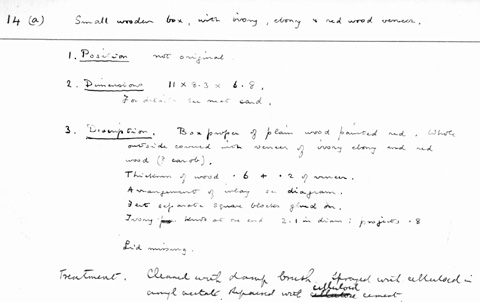 14 (a) Small wooden box, with ivory, ebony & red wood veneer.
1. Position not original.
2. Dimensions 11 x 8.3 x 6.8.
For details see next card.
3. Description. Box proper of plain wood painted red. Whole
outside covered with veneer of ivory ebony and red
wood (? carob).
Thickness of wood .6 + .2 of veneer.
Arrangement of inlay see diagram.
Feet separate square blocks glued on.
Ivory knob at one end 2.1 in diam: projects .8
Lid missing.
Treatment. Cleaned with damp brush. Sprayed with celluloid in
amyl acetate. Repaired with celluloid cement.